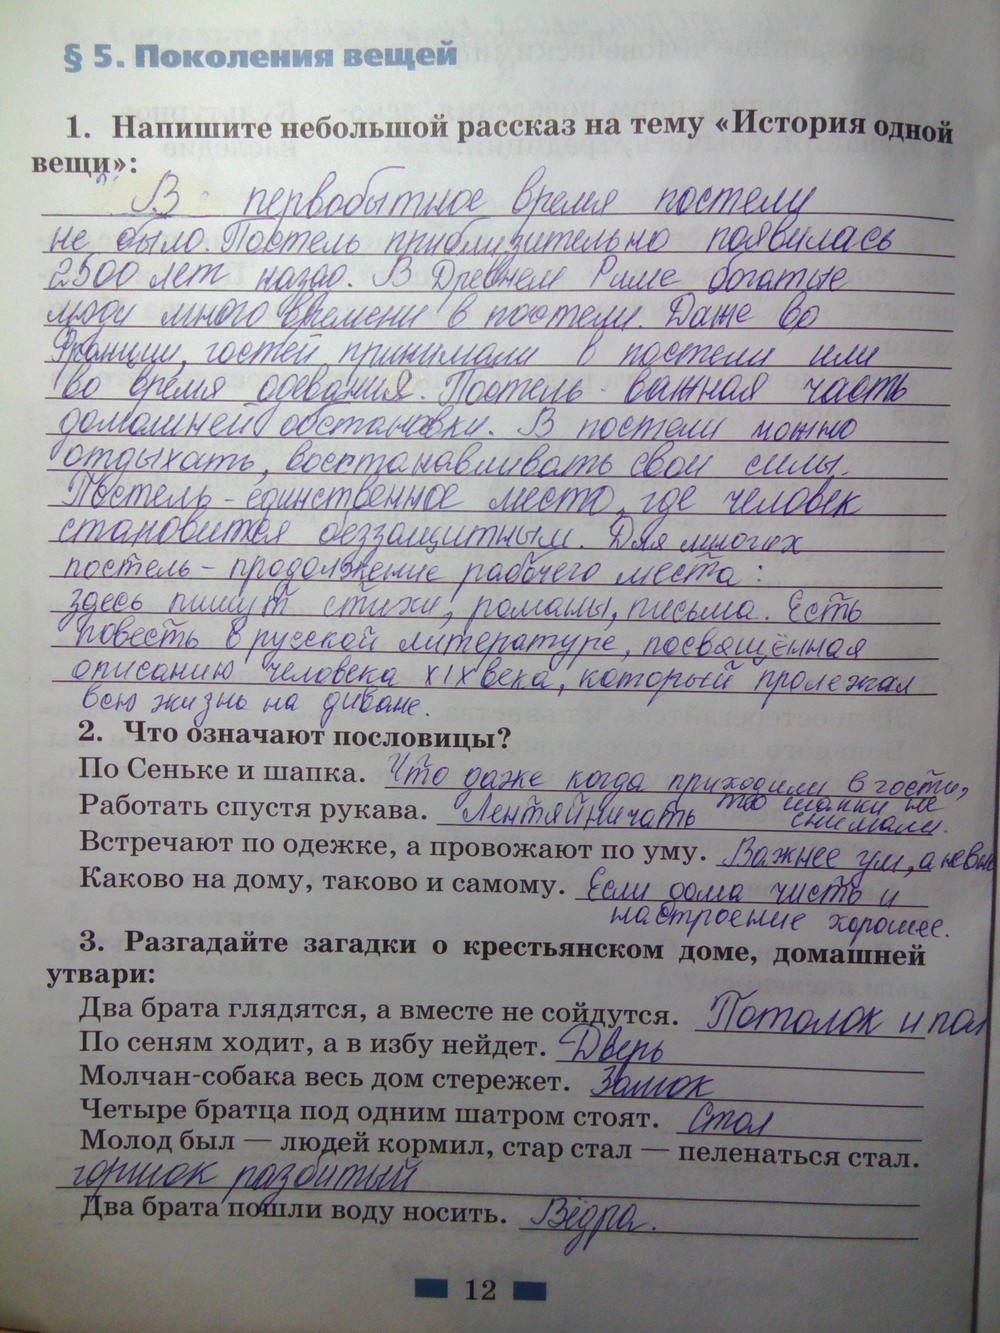 § 5. Поколения вещей
1. Напишите небольшой рассказ на тему «История одной
вещи»:
В первобытное время постели
не было. Постель приблизительно появилась
2500 лет назд. В Древнем Риме богатые
люди много времени в постели. Даже во
Франции, гостей принимали в постели или
во время одевания. Постель важная часть
домашней обстановки. В постели можно
отдыхать, восстанавливать свои силы.
Постель - единственное место, где человек
становится беззащитным. Для многих
постель - продолжение рабочего места:
здесь пишут стихи, романы, письма. Есть
повесть в русской литературе, посвящённая
описанию человека XIX века, который пролежал
всю жизнь на диване.
2. Что означают пословицы?
По Сеньке и шапка. Что даже когда приходили в гости,
то шапки не
Работать спустя рукава. Лентяйничать снимали.
Встречают по одежке, а провожают по уму. Важнее ум, а не
Каково на дому, таково и самому. Если дома чисто и
настроение хорошее.
3. Разгадайте загадки о крестьянском доме, домашней
утвари:
Два брата глядятся, а вместе не сойдутся. Потолок и пол
По сеням ходит, а в избу нейдет. Дверь
Молчан-собака весь дом стережет. Замок
Четыре братца под одним шатром стоят. Стол
Молод был — людей кормил, стар стал — пеленаться стал.
горшок разбитый
Два брата пошли воду носить. Вёдра.
12